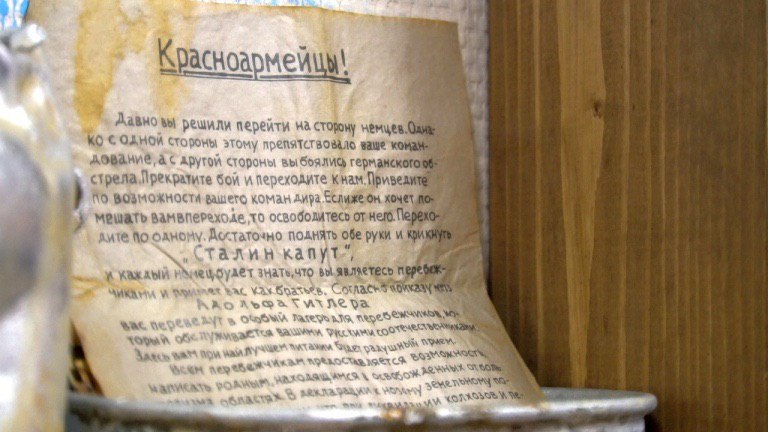 Красноармейцы!
Давно вы решили перейти на сторону немцев. Одна-
ко с одной стороны этому препятствовало ваше коман-
дование, а с другой стороны вы боялись германского об-
стрела. Прекратите бой и переходите к нам. Приведите
по возможности вашего командира. Если же он хочет по-
мешать вам в переходе, то освободитесь от него. Перехо-
дите по одному. Достаточно поднять обе руки и крикнуть
„Сталин капут",
и каждый немец будет знать, что вы являетесь перебеж-
чиками и примет вас как братьев. Согласно приказу
Адольфа Гитлера
вас переведут в особый лагерь для перебежчиков, ко-
торый обслуживается вашими русскими соотечественниками.
Здесь вам при наилучшем питании будет радушный прием.
Всем перебежчикам предоставляется возможность,
написать родным, находящимся в освобожденных от
областях. В декларации к новому земельному по-
ликвидации колхозов и пе-